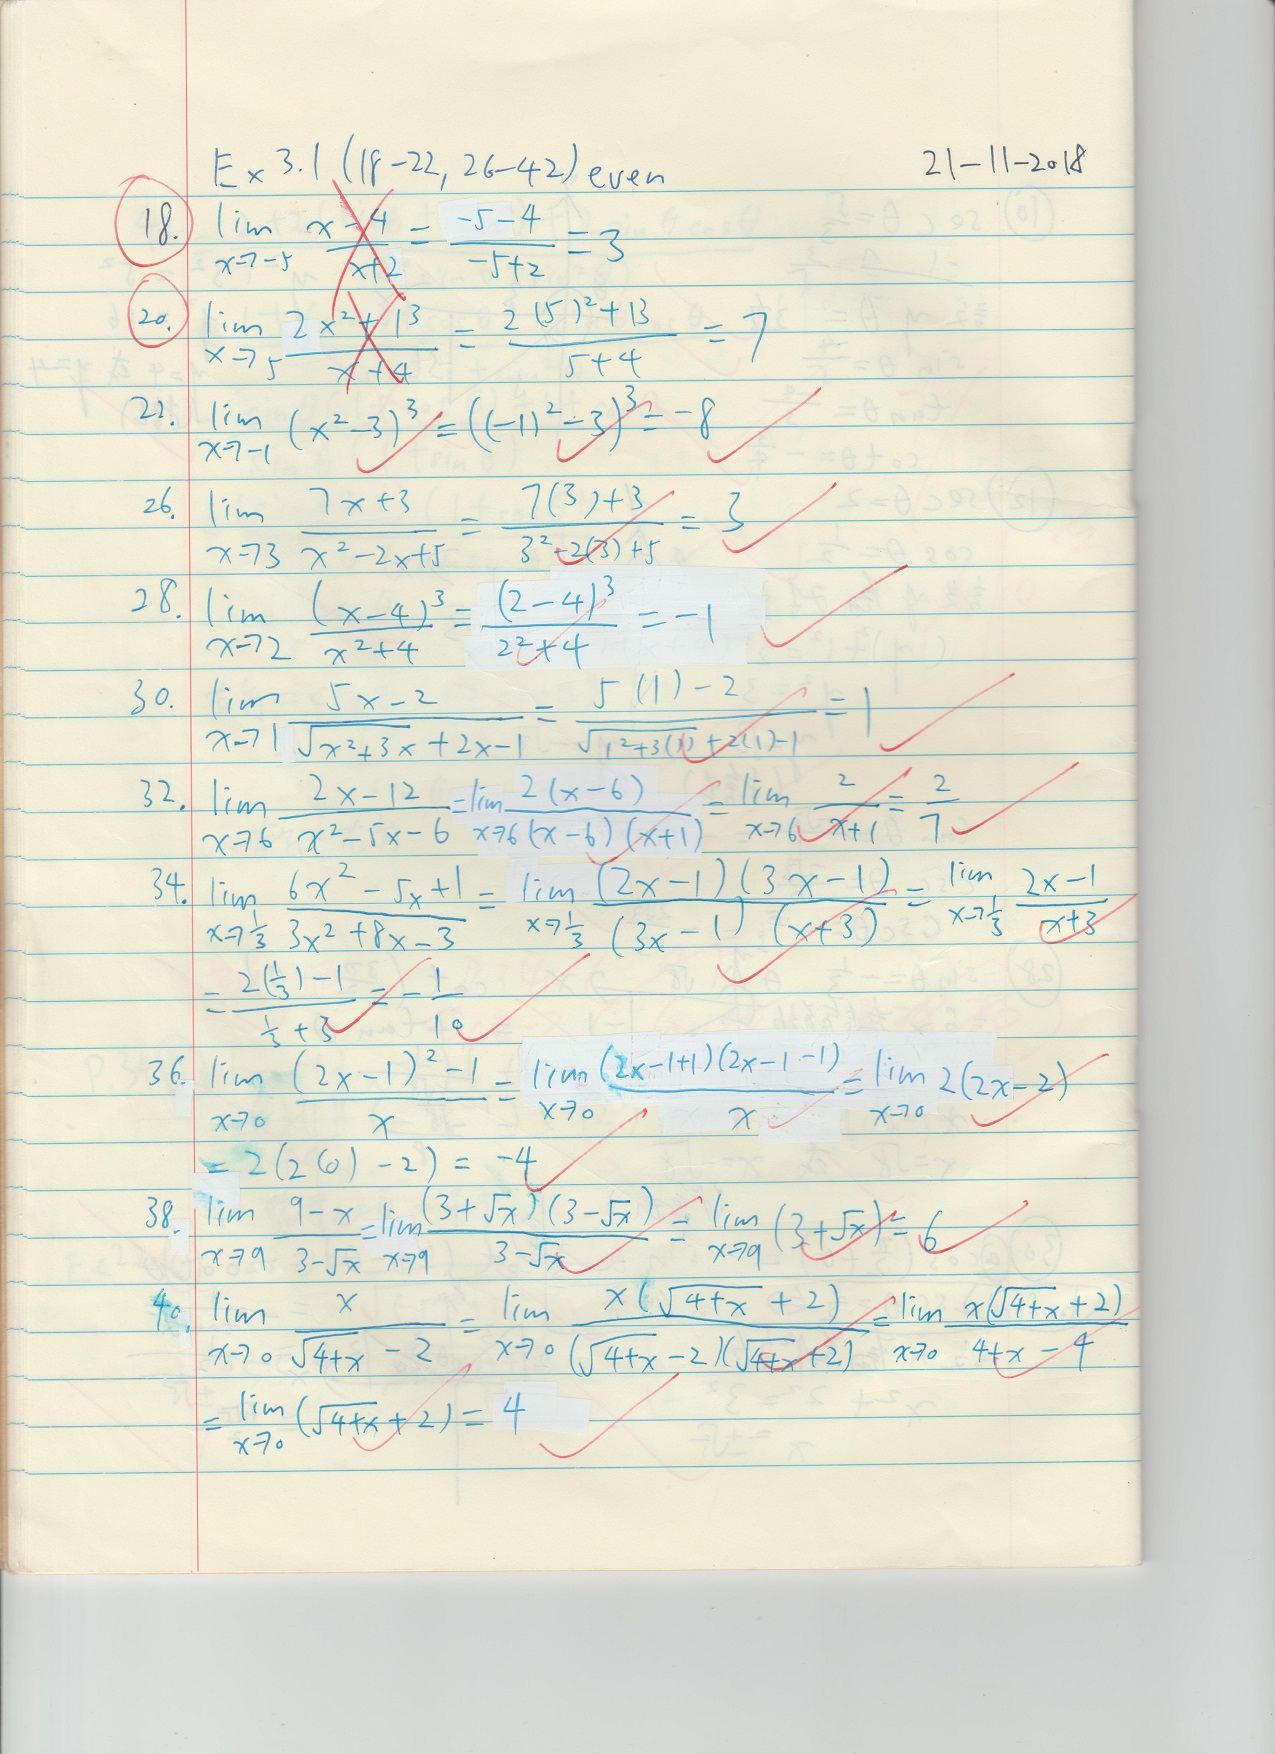 Ex 3.1 (18-22, 26-42) even 21-11-2018
18. lim x→-5 (x-4)/(x+2) = (-5-4)/(-5+2) = 3
20. lim x→5 (2x²+13)/(x+4) = (2(5)²+13)/(5+4) = 7
22. lim x→-1 (x²-3)³ = ((-1)²-3)³ = -8
26. lim x→3 (7x+3)/(x²-2x+5) = (7(3)+3)/(3²-2(3)+5) = 3
28. lim x→2 (x-4)³/(x²+4) = (2-4)³/(2²+4) = -1
30. lim x→1 (5x-2)/(√(x²+3x)+2x-1) = (5(1)-2)/(√(1²+3(1))+2(1)-1) = 1
32. lim x→6 (2x-12)/(x²-5x-6) = lim x→6 2(x-6)/((x-6)(x+1)) = lim x→6 2/(x+1) = 2/7
34. lim x→1/3 (6x²-5x+1)/(3x²+8x-3) = lim x→1/3 (2x-1)(3x-1)/((3x-1)(x+3)) = lim x→1/3 (2x-1)/(x+3)
= (2(1/3)-1)/(1/3+3) = -1/10
36. lim x→0 ((2x-1)²-1)/x = lim x→0 (2x-1+1)(2x-1-1)/x = lim x→0 2(2x-2)
= 2(2(0)-2) = -4
38. lim x→9 (9-x)/(3-√x) = lim x→9 (3+√x)(3-√x)/(3-√x) = lim x→9 (3+√x) = 6
40. lim x→0 x/(√(4+x)-2) = lim x→0 x(√(4+x)+2)/((√(4+x)-2)(√(4+x)+2)) = lim x→0 x(√(4+x)+2)/(4+x-4)
= lim x→0 (√(4+x)+2) = 4